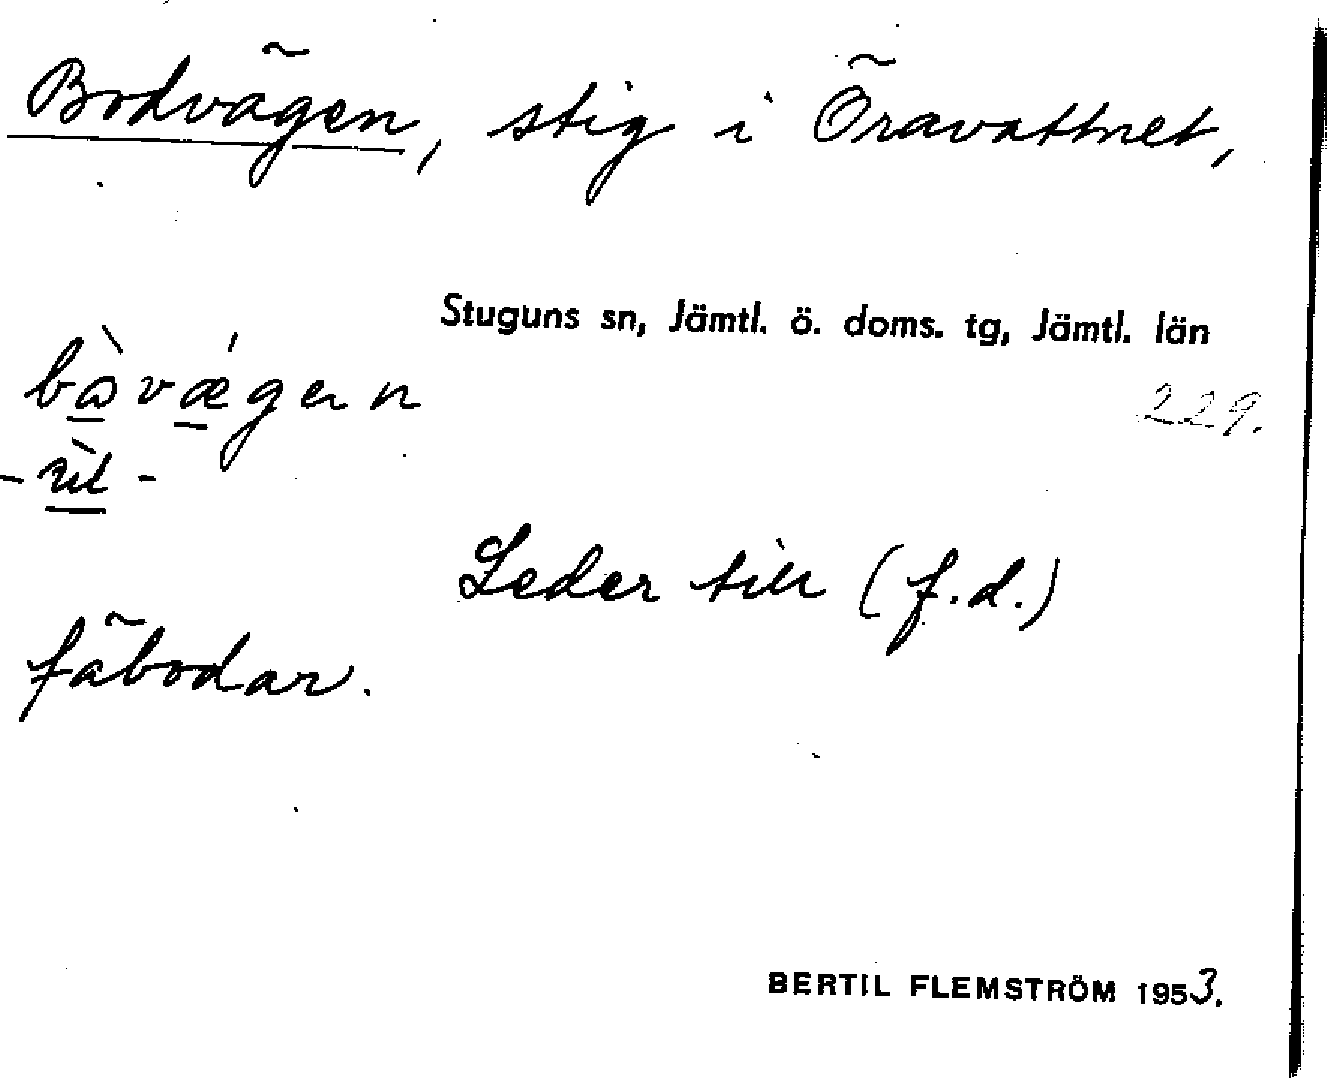 Bodvägen, stig i Öravattnet,
Stuguns sn, Jämtl. ö. doms. tg, Jämtl. län
229.
Leder till (f.d.)
fäbodar.
BERTIL FLEMSTRÖM 1953.